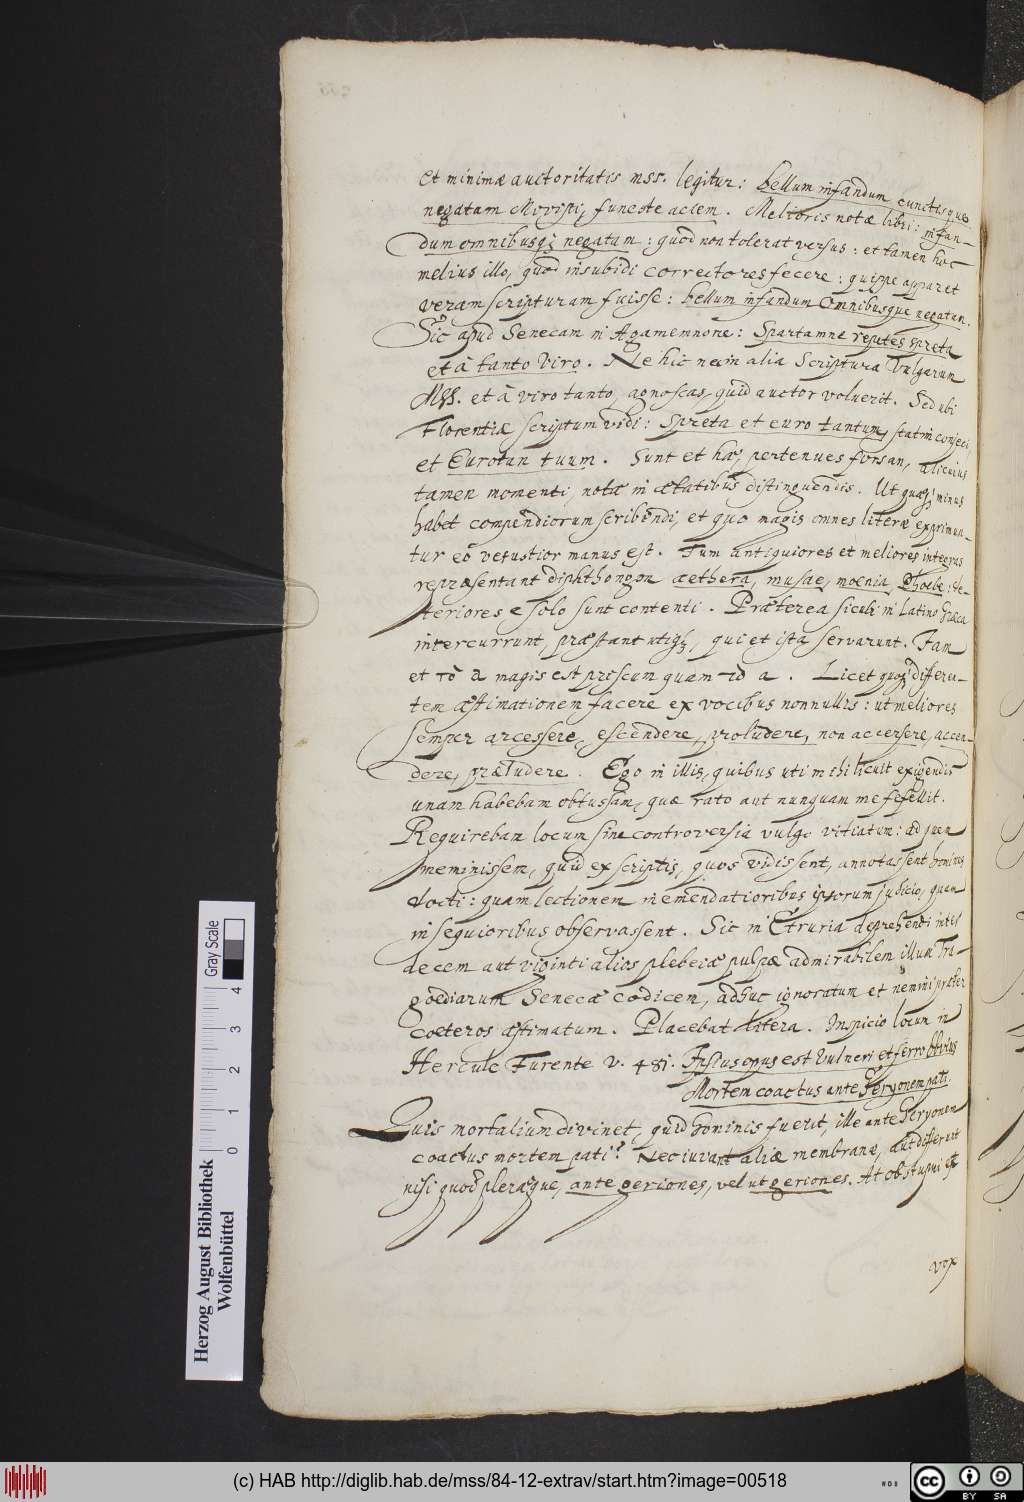 et minimæ auctoritatis mss. legitur: bellum infandum cunctisque
negatam Movisti, funeste aciem. Melioris notæ libri: infan-
dum omnibusq; negatam: quod non tolerat versus: et tamen hoc
melius illo, quod insubidi correctores fecere: quippe apparet
veram scripturam fuisse: bellum infandum Omnibusque negatam.
Sic apud Senecam in Agamemnone: Spartamne reputes spreta
et à tanto viro. Ne hic nec in alia scriptura vulgarum
MSS. et à viro tanto, agnoscas, quid auctor voluerit. Sed ubi
Florentiæ scriptum vidi: Spreta et euro tantum, statim conjeci,
et Eurotan tuum. Sunt et hæ, pertenues forsan, alicuius
tamen momenti, notæ in ætatibus distinguendis. Ut quæq; minus
habet compendiorum scribendi, et quo magis omnes literæ exprimun-
tur eò vetustior manus est. Tum antiquiores et meliores integras
repræsentant diphthongon aethera, musae, moenia, Phoebe: de-
teriores e solo sunt contenti. Præterea sicubi in Latino Græca
intercurrunt, præstant utiq;, qui et ista servarunt. Jam
et τὸ a magis est priscum quam τὸ a. Licet quoq; differen-
tem æstimationem facere ex vocibus nonnullis: ut meliores
semper arcessere, escendere, proludere, non accersere, accen-
dere, præludere. Ego in illis, quibus uti mihi licuit exigendis
unam habebam obrussam, quæ raro aut nunquam me fefellit.
Requirebam locum sine controversia vulgo vitiatum: ad quem
meminissem, quid ex scriptis, quos vidissent, annotassent homines
docti: quam lectionem in emendatioribus ipsorum judicio, quam
in sequioribus observassent. Sic in Etruria deprehendi inter
decem aut viginti alios plebeiæ pulpæ admirabilem illum Tra-
goediarum Senecæ codicem, adhuc ignoratum et nemini præter
coeteros æstimatum. Placebat litera. Inspicio locum in
Hercule Furente v. 481. Ipsius opus est vulneri et ferro obvius
Mortem coactus ante Geryonem pati.
Quis mortalium divinet, quid hominis fuerit, ille ante Geryonem
coactus mortem pati? Nec iuvant aliæ membranæ, aut differunt
nisi quod pleræque, ante geriones, vel ut geriones. At obstupui et
vox
Gray Scale
0 1 2 3 4
Herzog August Bibliothek
Wolfenbüttel
(c) HAB http://diglib.hab.de/mss/84-12-extrav/start.htm?image=00518
cc BY SA